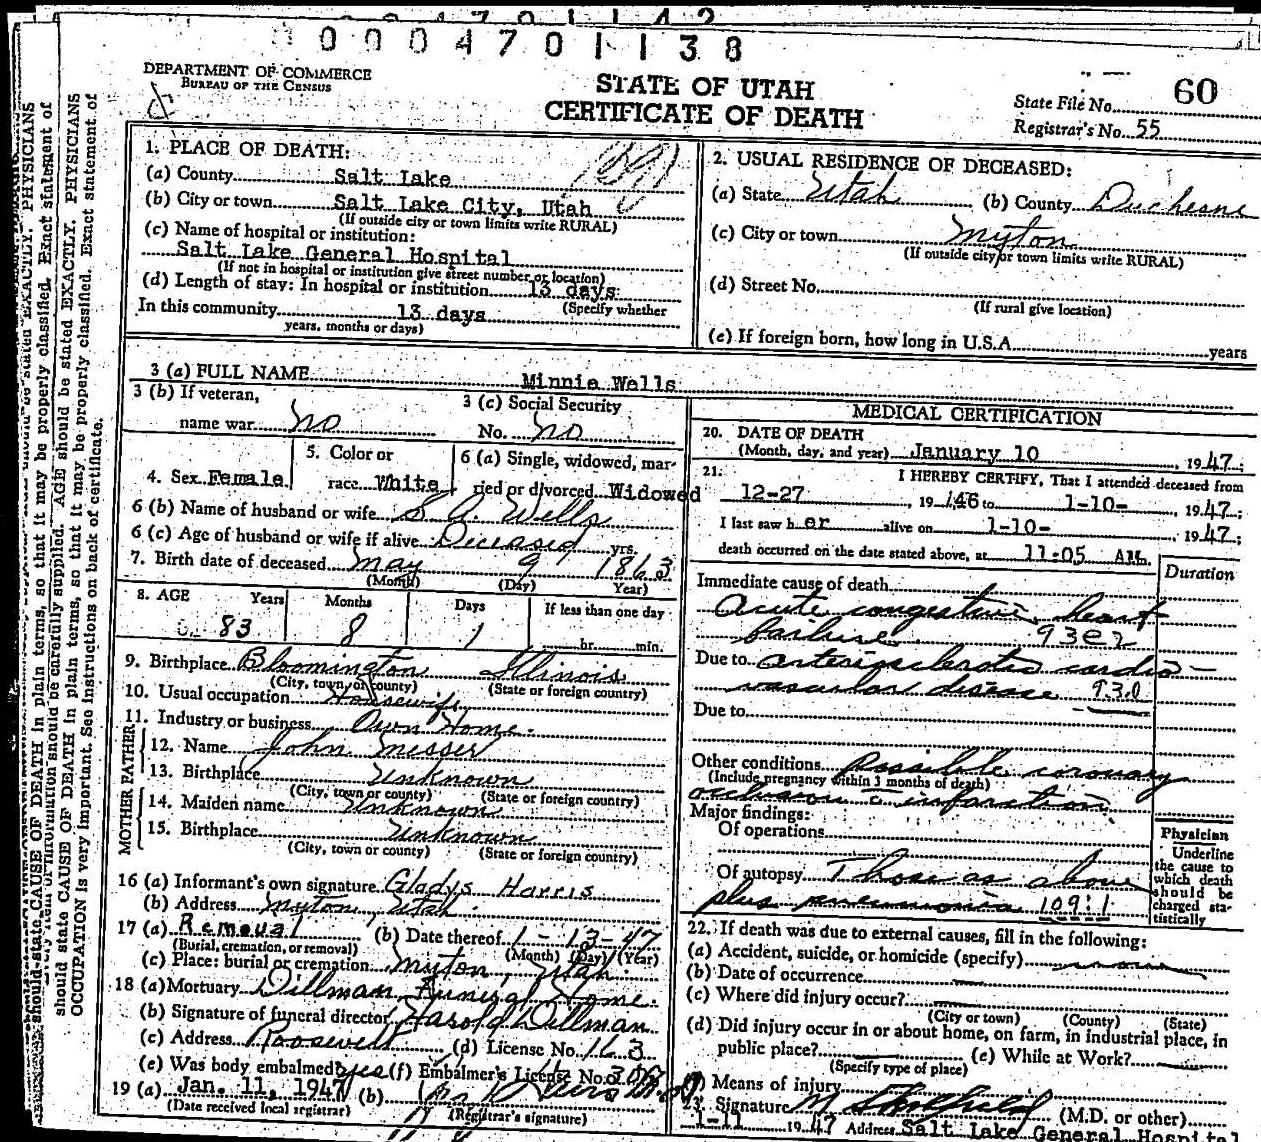 0004701138
DEPARTMENT OF COMMERCE
BUREAU OF THE CENSUS
STATE OF UTAH
CERTIFICATE OF DEATH
State File No. 60
Registrar's No. 55
1. PLACE OF DEATH:
(a) County Salt Lake
(b) City or town Salt Lake City, Utah
(If outside city or town limits write RURAL)
(c) Name of hospital or institution:
Salt Lake General Hospital
(If not in hospital or institution give street number or location)
(d) Length of stay: In hospital or institution 13 days
(Specify whether
In this community 13 days
years, months or days)
2. USUAL RESIDENCE OF DECEASED:
(a) State Utah (b) County Duchesne
(c) City or town Myton
(If outside city or town limits write RURAL)
(d) Street No.
(If rural give location)
(e) If foreign born, how long in U.S.A. years
3 (a) FULL NAME Minnie Wells
3 (b) If veteran,
name war no
3 (c) Social Security
No. no
4. Sex Female
5. Color or
race White
6 (a) Single, widowed, mar-
ried or divorced Widowed
6 (b) Name of husband or wife S. A. Wells
6 (c) Age of husband or wife if alive Deceased yrs.
7. Birth date of deceased May 9 1863
(Month) (Day) Year)
8. AGE Years Months Days If less than one day
83 8 1 hr. min.
9. Birthplace Bloomington Illinois
(City, town, or county) (State or foreign country)
10. Usual occupation Housewife
11. Industry or business Own Home.
FATHER
12. Name John Messer
13. Birthplace Unknown
(City, town or county) (State or foreign country)
MOTHER
14. Maiden name Unknown
15. Birthplace Unknown
(City, town or county) (State or foreign country)
16 (a) Informant's own signature Gladys Harris
(b) Address Myton, Utah.
17 (a) Removal (b) Date thereof 1-13-47
(Burial, cremation, or removal) (Month) (Day) (Year)
(c) Place: burial or cremation Myton, Utah.
18 (a) Mortuary Dillman Funeral Home.
(b) Signature of funeral director Harold Dillman
(c) Address Roosevelt (d) License No. 163
(e) Was body embalmed yes (f) Embalmer's License No.
19 (a) Jan. 11, 1947 (b)
(Date received local registrar) (Registrar's signature)
MEDICAL CERTIFICATION
20. DATE OF DEATH
(Month, day, and year) January 10, 1947;
21. I HEREBY CERTIFY, That I attended deceased from
12-27, 1946 to 1-10-, 1947;
I last saw her alive on 1-10-, 1947;
death occurred on the date stated above, at 11:05 AM.
Duration
Immediate cause of death
Acute congestive heart
failure 93e2
Due to arteriosclerotic cardio-
vascular disease 93d
Due to
Other conditions possible coronary
(Include pregnancy within 3 months of death)
occlusion c infarction
Major findings:
Of operations
Of autopsy Those as above
plus pneumonia 109:1
Physician
Underline
the cause to
which death
should be
charged sta-
tistically
22. If death was due to external causes, fill in the following:
(a) Accident, suicide, or homicide (specify)
(b) Date of occurrence
(c) Where did injury occur?
(City or town) (County) (State)
(d) Did injury occur in or about home, on farm, in industrial place, in
public place? (e) While at Work?
(Specify type of place)
(f) Means of injury
23. Signature (M.D. or other)
1-11 1947 Address Salt Lake General Hospital
should state CAUSE OF DEATH in plain terms, so that it may be properly classified. Exact statement of
should be carefully supplied. AGE should be stated EXACTLY. PHYSICIANS
should state CAUSE OF DEATH in plain terms, so that it may be properly classified. Exact statement of
OCCUPATION is very important. See instructions on back of certificate.